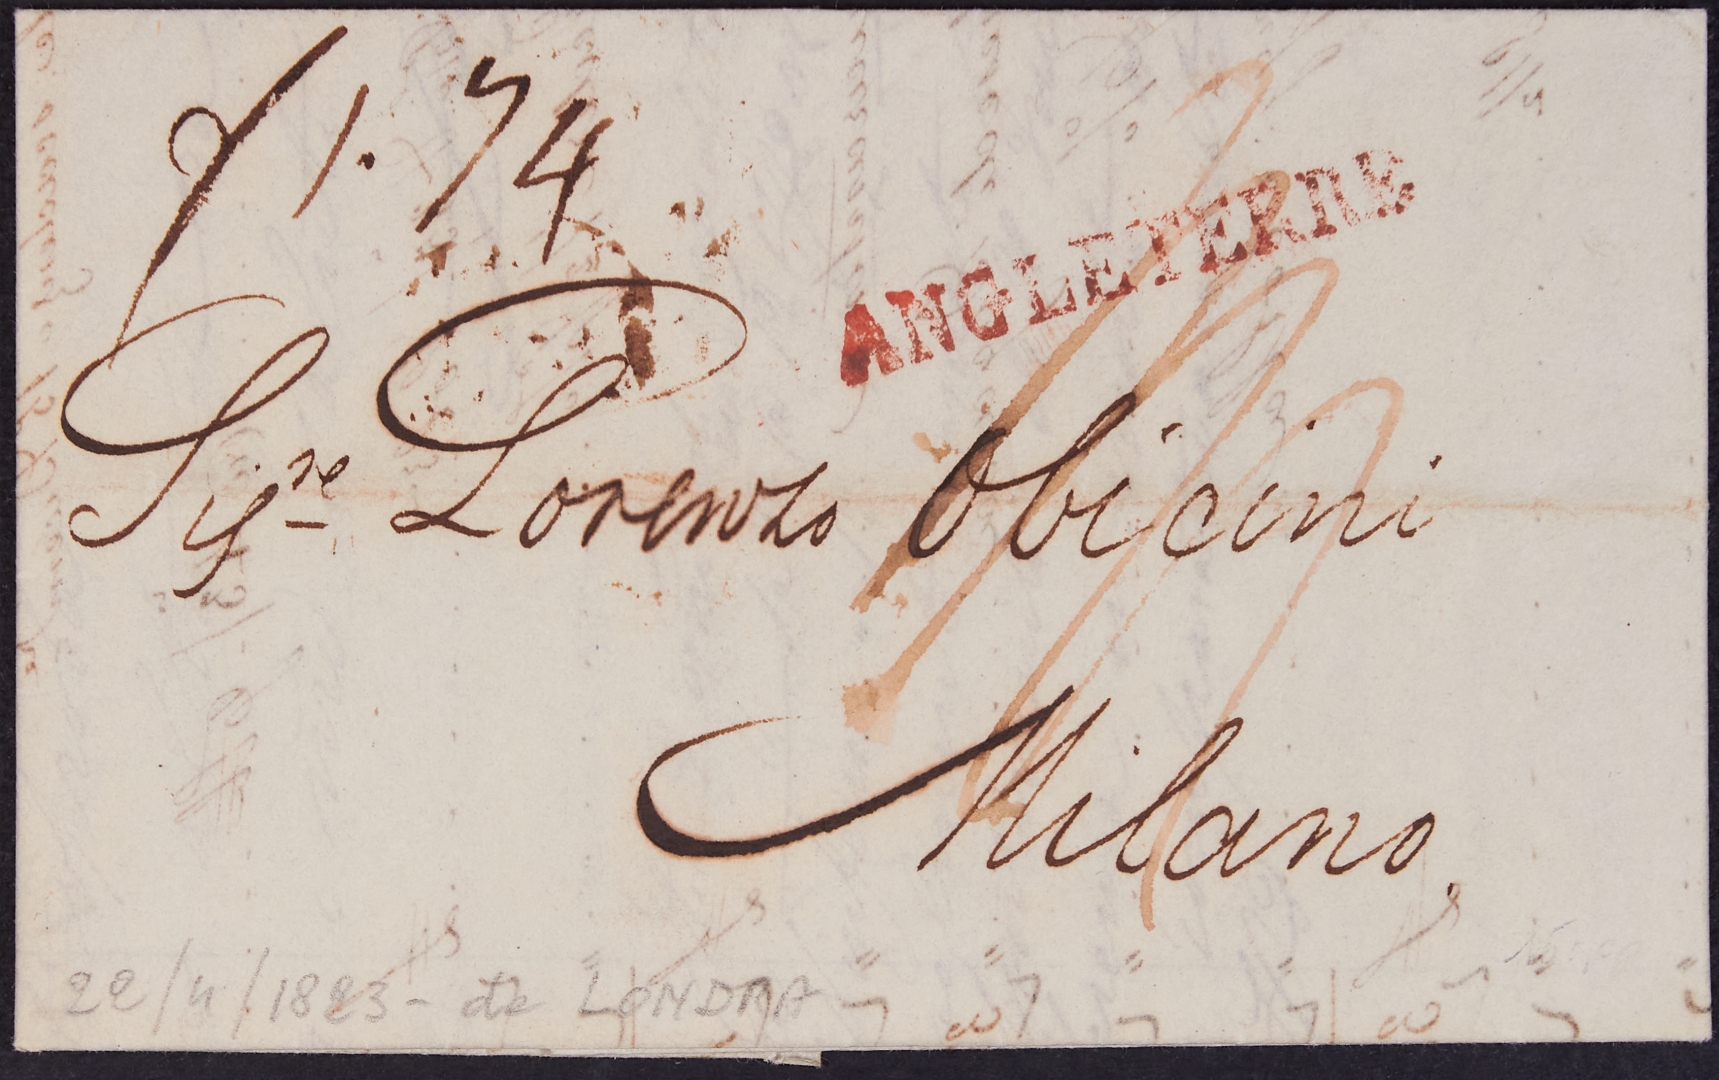 1.74
ANGLETERRE
Sig.re Lorenzo Obicini
Milano.
22/4/1823 - da LONDRA